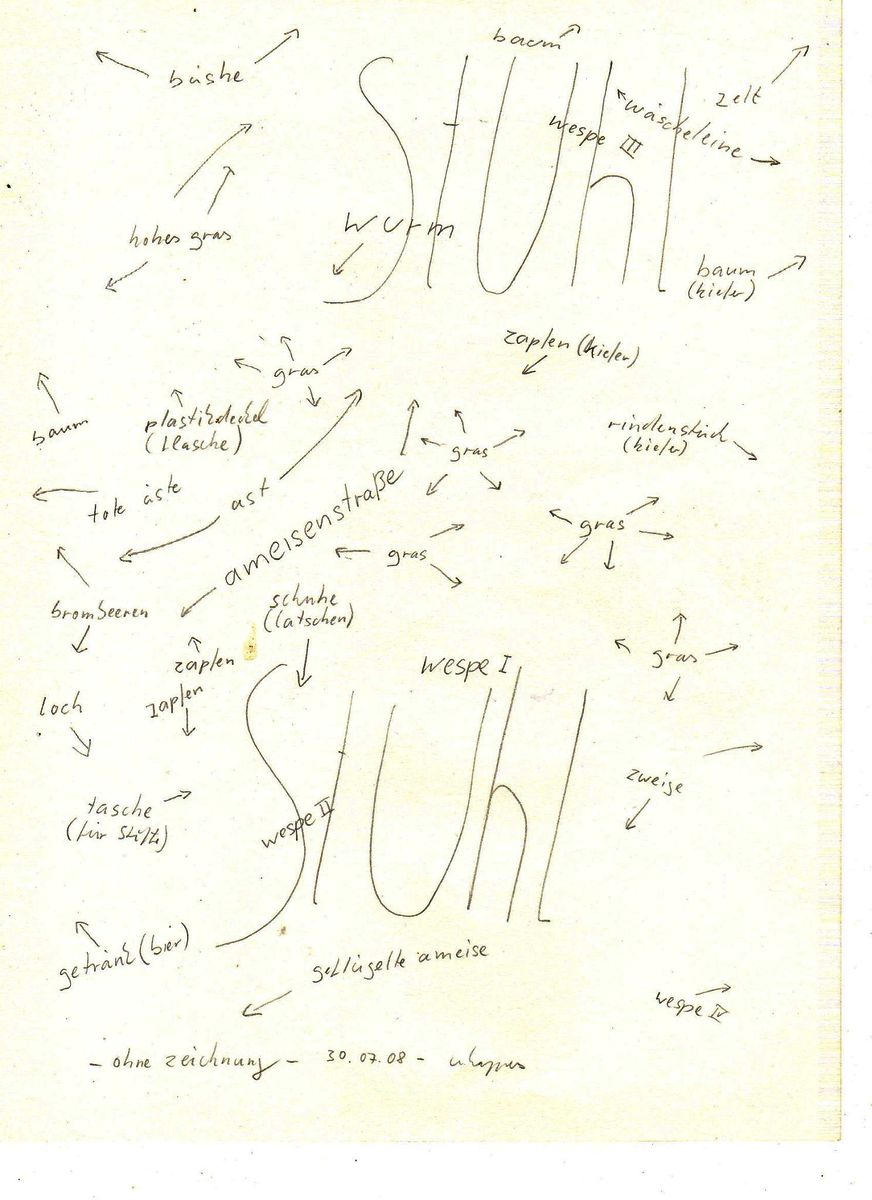 baum
büshe
zelt
wäscheleine
wespe III
Stuhl
hohes gras
wurm
baum
(kiefer)
zapfen (kiefer)
gras
plastikdeckel
(flasche)
baum
rindenstück
(kiefer)
gras
tote äste
ast
ameisenstraße
gras
gras
brombeeren
schuhe
(latschen)
zapfen
gras
wespe I
zapfen
loch
Stuhl
zweige
tasche
(für stifte)
wespe II
getränk (bier)
geflügelte ameise
wespe IV
- ohne zeichnung - 30.07.08 -